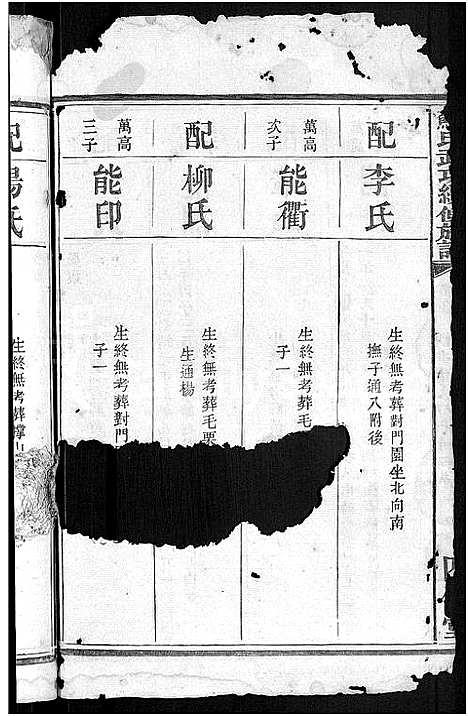 配李氏
生終無考葬對門園坐北向南
撫子通入附後
萬高
次子
能衢
生終無考葬毛
子一
配柳氏
生終無考葬毛栗
生通楊
萬高
三子
能印
生終無考葬對門
子一
配楊氏
生終無考葬